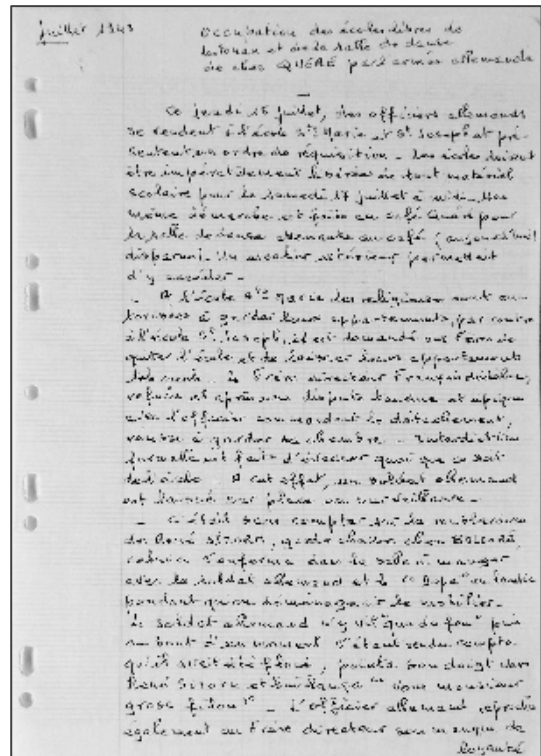 juillet 1943
Occupation des écoles libres de
et de la salle de danse
de chez QUÉRÉ par l'armée allemande
Ce jeudi 15 juillet, des officiers allemands
se rendent à l'école Ste Marie et St Joseph et pré-
sentent un ordre de réquisition - Les écoles doivent
être impérativement libérées de tout matériel
scolaire pour le samedi 17 juillet à midi - Une
même démarche est faite au café Quéré pour
la salle de danse attenante au café (aujourd'hui
disparue). Un escalier extérieur permettait
d'y accéder -
- A l'école Ste Marie les religieuses sont au-
torisées à garder leurs appartements, par contre
à l'école St Joseph, il est demandé aux Frères de
quitter l'école et de laisser leurs appartements
- Le Frère directeur François
refuse et après une dispute
avec l'officier commandant le détachement,
réussit à garder sa chambre - Interdiction
formelle est faite d'évacuer quoi que ce soit
de l'école - A cet effet, un soldat allemand
est laissé sur place en surveillance -
- C'était sans compter sur la
de René
s'enferme dans la salle à manger
avec le soldat allemand et le
pendant qu'on déménageait le mobilier -
Le soldat allemand n'y vit que du feu puis
au bout d'un moment s'étant rendu compte
qu'il avait été floué, pointa son doigt vers
René et "vous monsieur
gros filou" - L'officier allemand reproche
également au Frère directeur son manque de
loyauté